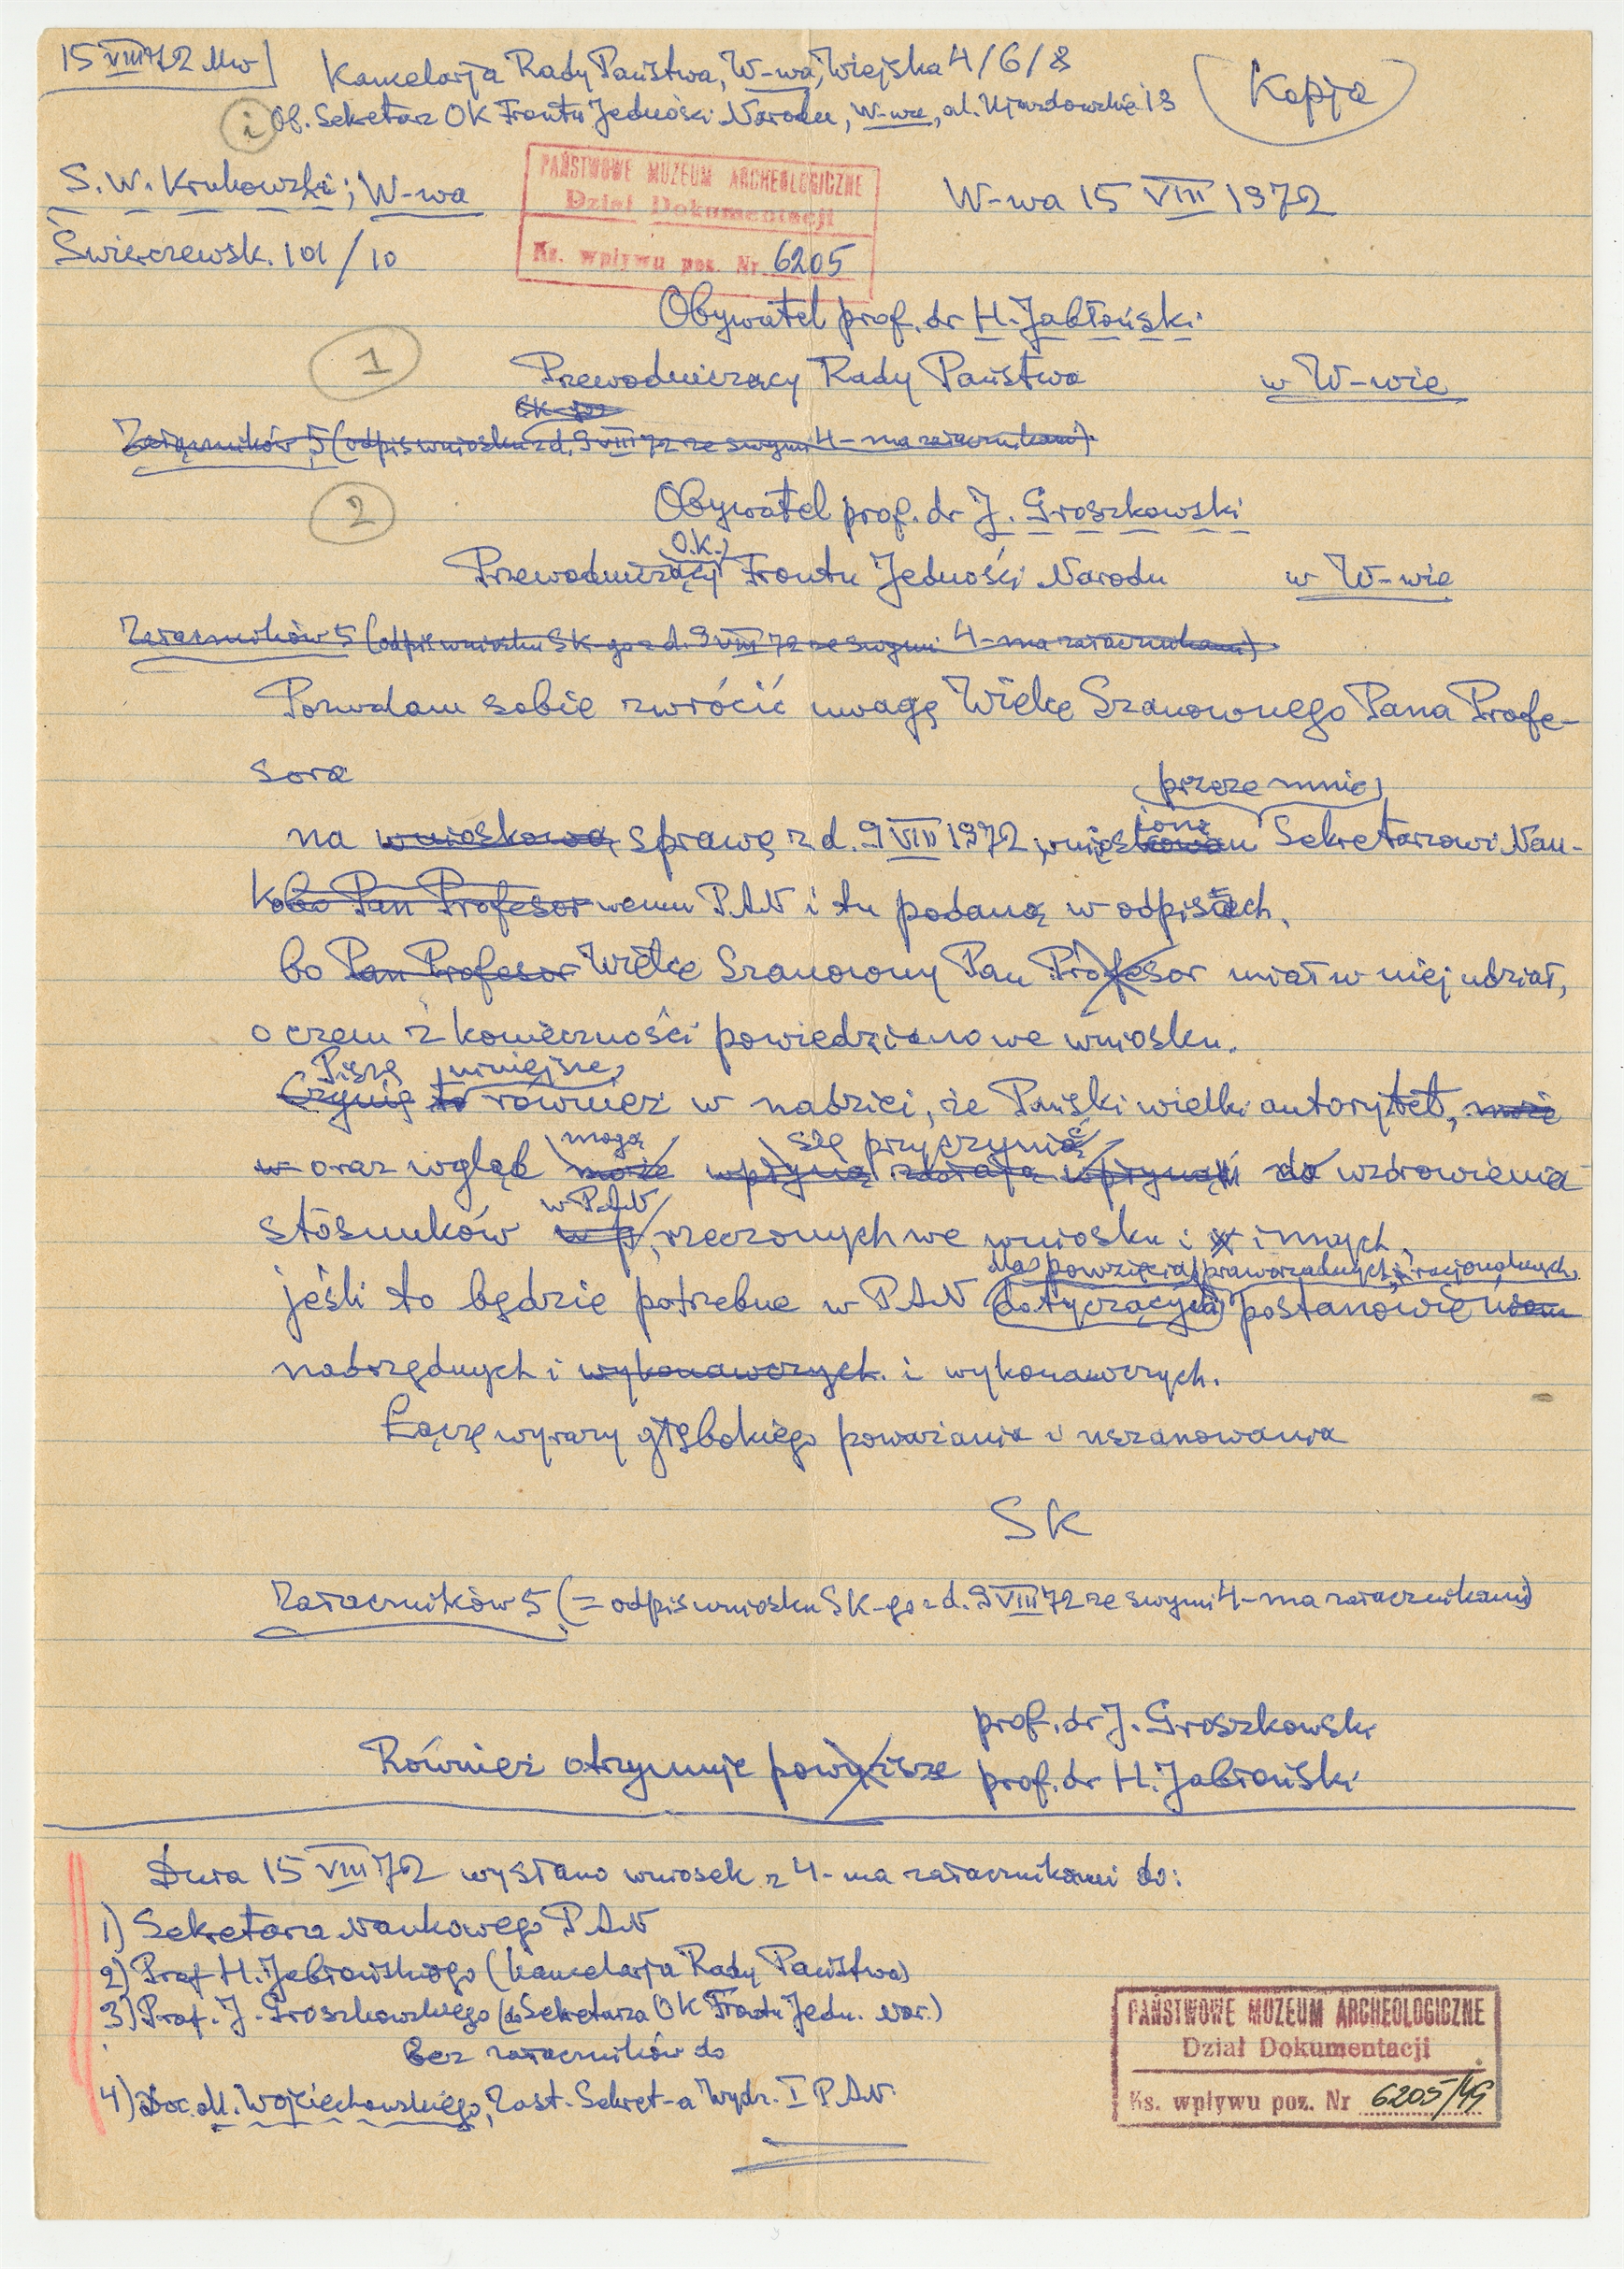 15 VIII 72 Mw
Kancelarja Rady Państwa, W-wa, Wiejska 4/6/8
Kopja
i Ob. Sekretarz OK Frontu Jedności Narodu, W-wa, al. Ujazdowskie 13
S. W. Krukowski; W-wa
W-wa 15 VIII 1972
Świerczewsk. 101/10
PAŃSTWOWE MUZEUM ARCHEOLOGICZNE
Dział Dokumentacji
Ks. wpływu poz. Nr 6205
Obywatel prof. dr H. Jabłoński
1
Przewodniczący Rady Państwa w W-wie
SK-go
Załączników 5 (odpis wniosku z d. 9 VIII 72 ze swymi 4-ma załącznikami)
2
Obywatel prof. dr J. Groszkowski
O.K.
Przewodniczący Frontu Jedności Narodu w W-wie
Załączników 5 (odpis wniosku SK-go z d. 9 VIII 72 ze swymi 4-ma załącznikami)
Pozwalam sobie zwrócić uwagę Wielce Szanownego Pana Profe-
sora
przeze mnie
na wnioskową sprawę z d. 9 VIII 1972, wniesioną Sekretarzowi Nau-
kobo Pan Profesor wemu PAN i tu podaną w odpisach,
bo Pan Profesor Wielce Szanowny Pan Profesor miał w niej udział,
o czem z konieczności powiedziano we wniosku.
Piszę niniejsze,
Czynię to również w nadziei, że Pański wielki autorytet, może
mogą się przyczynić
w oraz wgląd może wpłyną wpłynąć do wzdrowienia
w PAN
stosunków w p, rzeczonych we wniosku i innych,
dla powzięcia praworządnych i racjonalnych
jeśli to będzie potrzebne w PAN dotyczących postanowień
nadrzędnych i wykonawczych. i wykonawczych.
Łączę wyrazy głębokiego poważania i uszanowania
SK
Załączników 5 (= odpis wniosku SK-go z d. 9 VIII 72 ze swymi 4-ma załącznikami)
prof. dr J. Groszkowski
Również otrzymuje powyższe prof. dr H. Jabłoński
Dnia 15 VIII 72 wysłano wniosek z 4-ma załącznikami do:
1) Sekretarza Naukowego PAN
2) Prof H. Jabłońskiego (Kancelarja Rady Państwa)
3) Prof. J. Groszkowskiego (do Sekretarza OK Frontu Jedn. Nar.)
Bez załączników do
4) Doc. M. Wojciechowskiego, Zast. Sekret-a Wydz. I PAN
PAŃSTWOWE MUZEUM ARCHEOLOGICZNE
Dział Dokumentacji
Ks. wpływu poz. Nr 6205/49